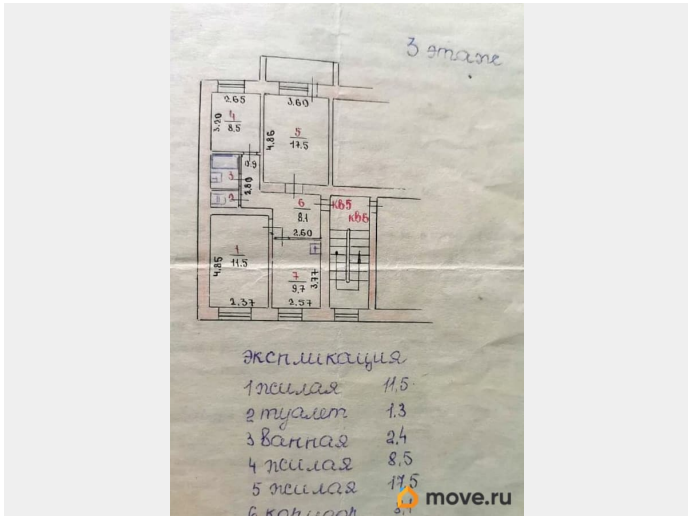 3 этаж
2.65
3.60
3.20
4
8.5
4.86
5
17.5
0.9
3
2.80
2
6
8.1
кв5
кв6
2.60
4.85
1
11.5
7
9.7
3.77
2.37
2.57
экспликация
1 жилая 11,5
2 туалет 1.3
3 Ванная 2,4
4 жилая 8,5
5 жилая 17,5
6 коридор 8,1
move.ru